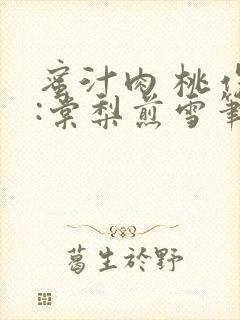 蜜汁肉桃
:棠梨煎雪
葛生於野